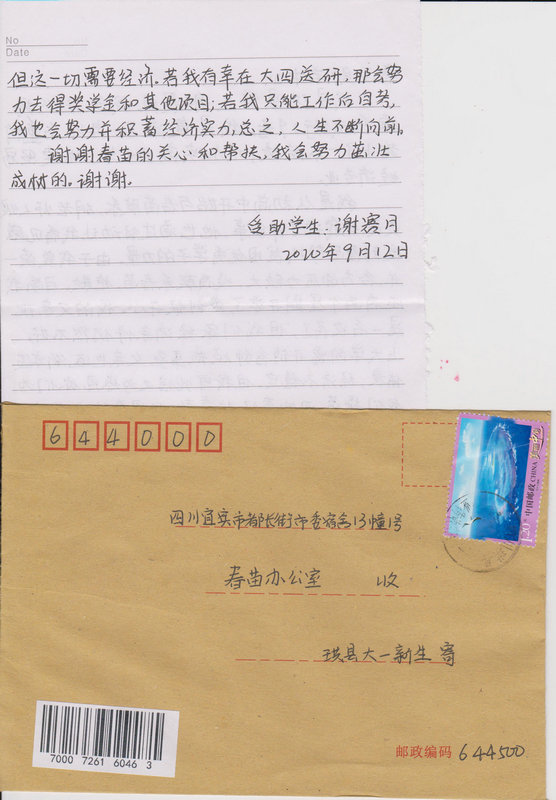 No
Date
但这一切需要经济。若我有幸在大四送研，那会努
力去得奖学金和其他项目；若我只能工作后自考，
我也会努力并积蓄经济实力，总之，人生不断向前。
谢谢春苗的关心和帮扶，我会努力茁壮
成材的。谢谢。
受助学生：谢赛月
2020年9月12日
644000
中国邮政 CHINA
1.20元
四川宜宾市都长街市委宿舍13幢1号
春苗办公室 收
珙县大一新生 寄
7000 7261 6046 3
邮政编码 644500